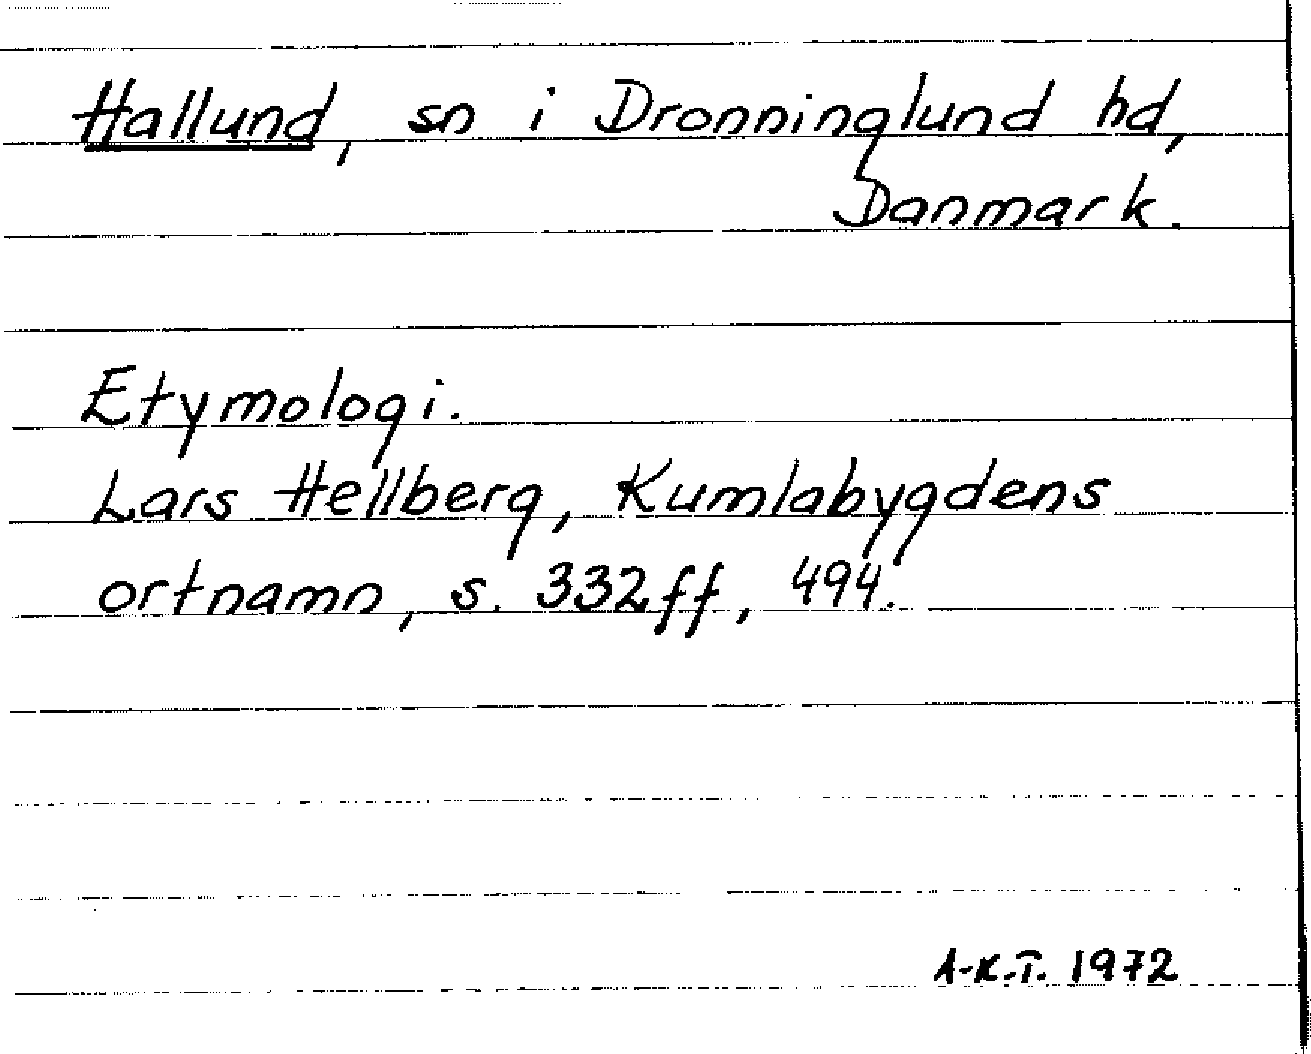 Hallund, sn i Dronninglund hd,
Danmark.
Etymologi.
Lars Hellberg, Kumlabygdens
ortnamn, s. 332ff, 494.
A-K.T. 1972